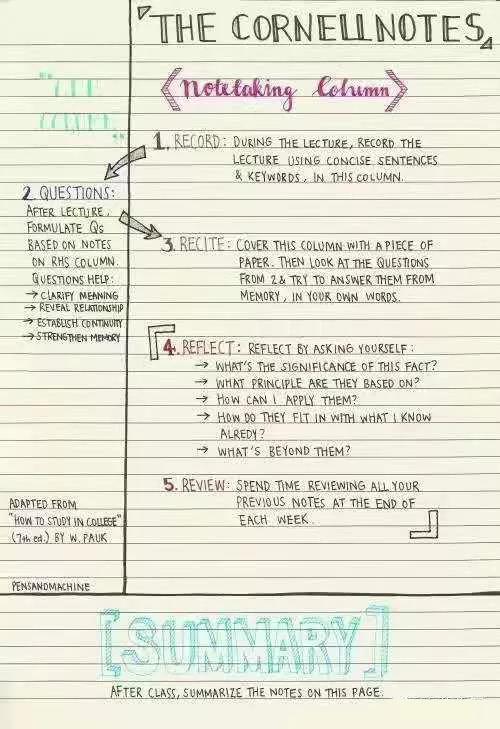 THE CORNELLNOTES
Notetaking Column
1. RECORD: DURING THE LECTURE, RECORD THE
LECTURE USING CONCISE SENTENCES
& KEYWORDS, IN THIS COLUMN.
2. QUESTIONS:
AFTER LECTURE,
FORMULATE Qs
BASED ON NOTES
ON RHS COLUMN.
QUESTIONS HELP:
→ CLARIFY MEANING
→ REVEAL RELATIONSHIP
→ ESTABLISH CONTINUITY
→ STRENGTHEN MEMORY
3. RECITE: COVER THIS COLUMN WITH A PIECE OF
PAPER. THEN LOOK AT THE QUESTIONS
FROM 2 & TRY TO ANSWER THEM FROM
MEMORY, IN YOUR OWN WORDS.
4. REFLECT: REFLECT BY ASKING YOURSELF:
→ WHAT'S THE SIGNIFICANCE OF THIS FACT?
→ WHAT PRINCIPLE ARE THEY BASED ON?
→ HOW CAN I APPLY THEM?
→ HOW DO THEY FIT IN WITH WHAT I KNOW
ALREDY?
→ WHAT'S BEYOND THEM?
5. REVIEW: SPEND TIME REVIEWING ALL YOUR
PREVIOUS NOTES AT THE END OF
EACH WEEK.
ADAPTED FROM
"HOW TO STUDY IN COLLEGE"
(7th ed.) BY W. PAUK
PENSANDMACHINE
[SUMMARY]
AFTER CLASS, SUMMARIZE THE NOTES ON THIS PAGE.